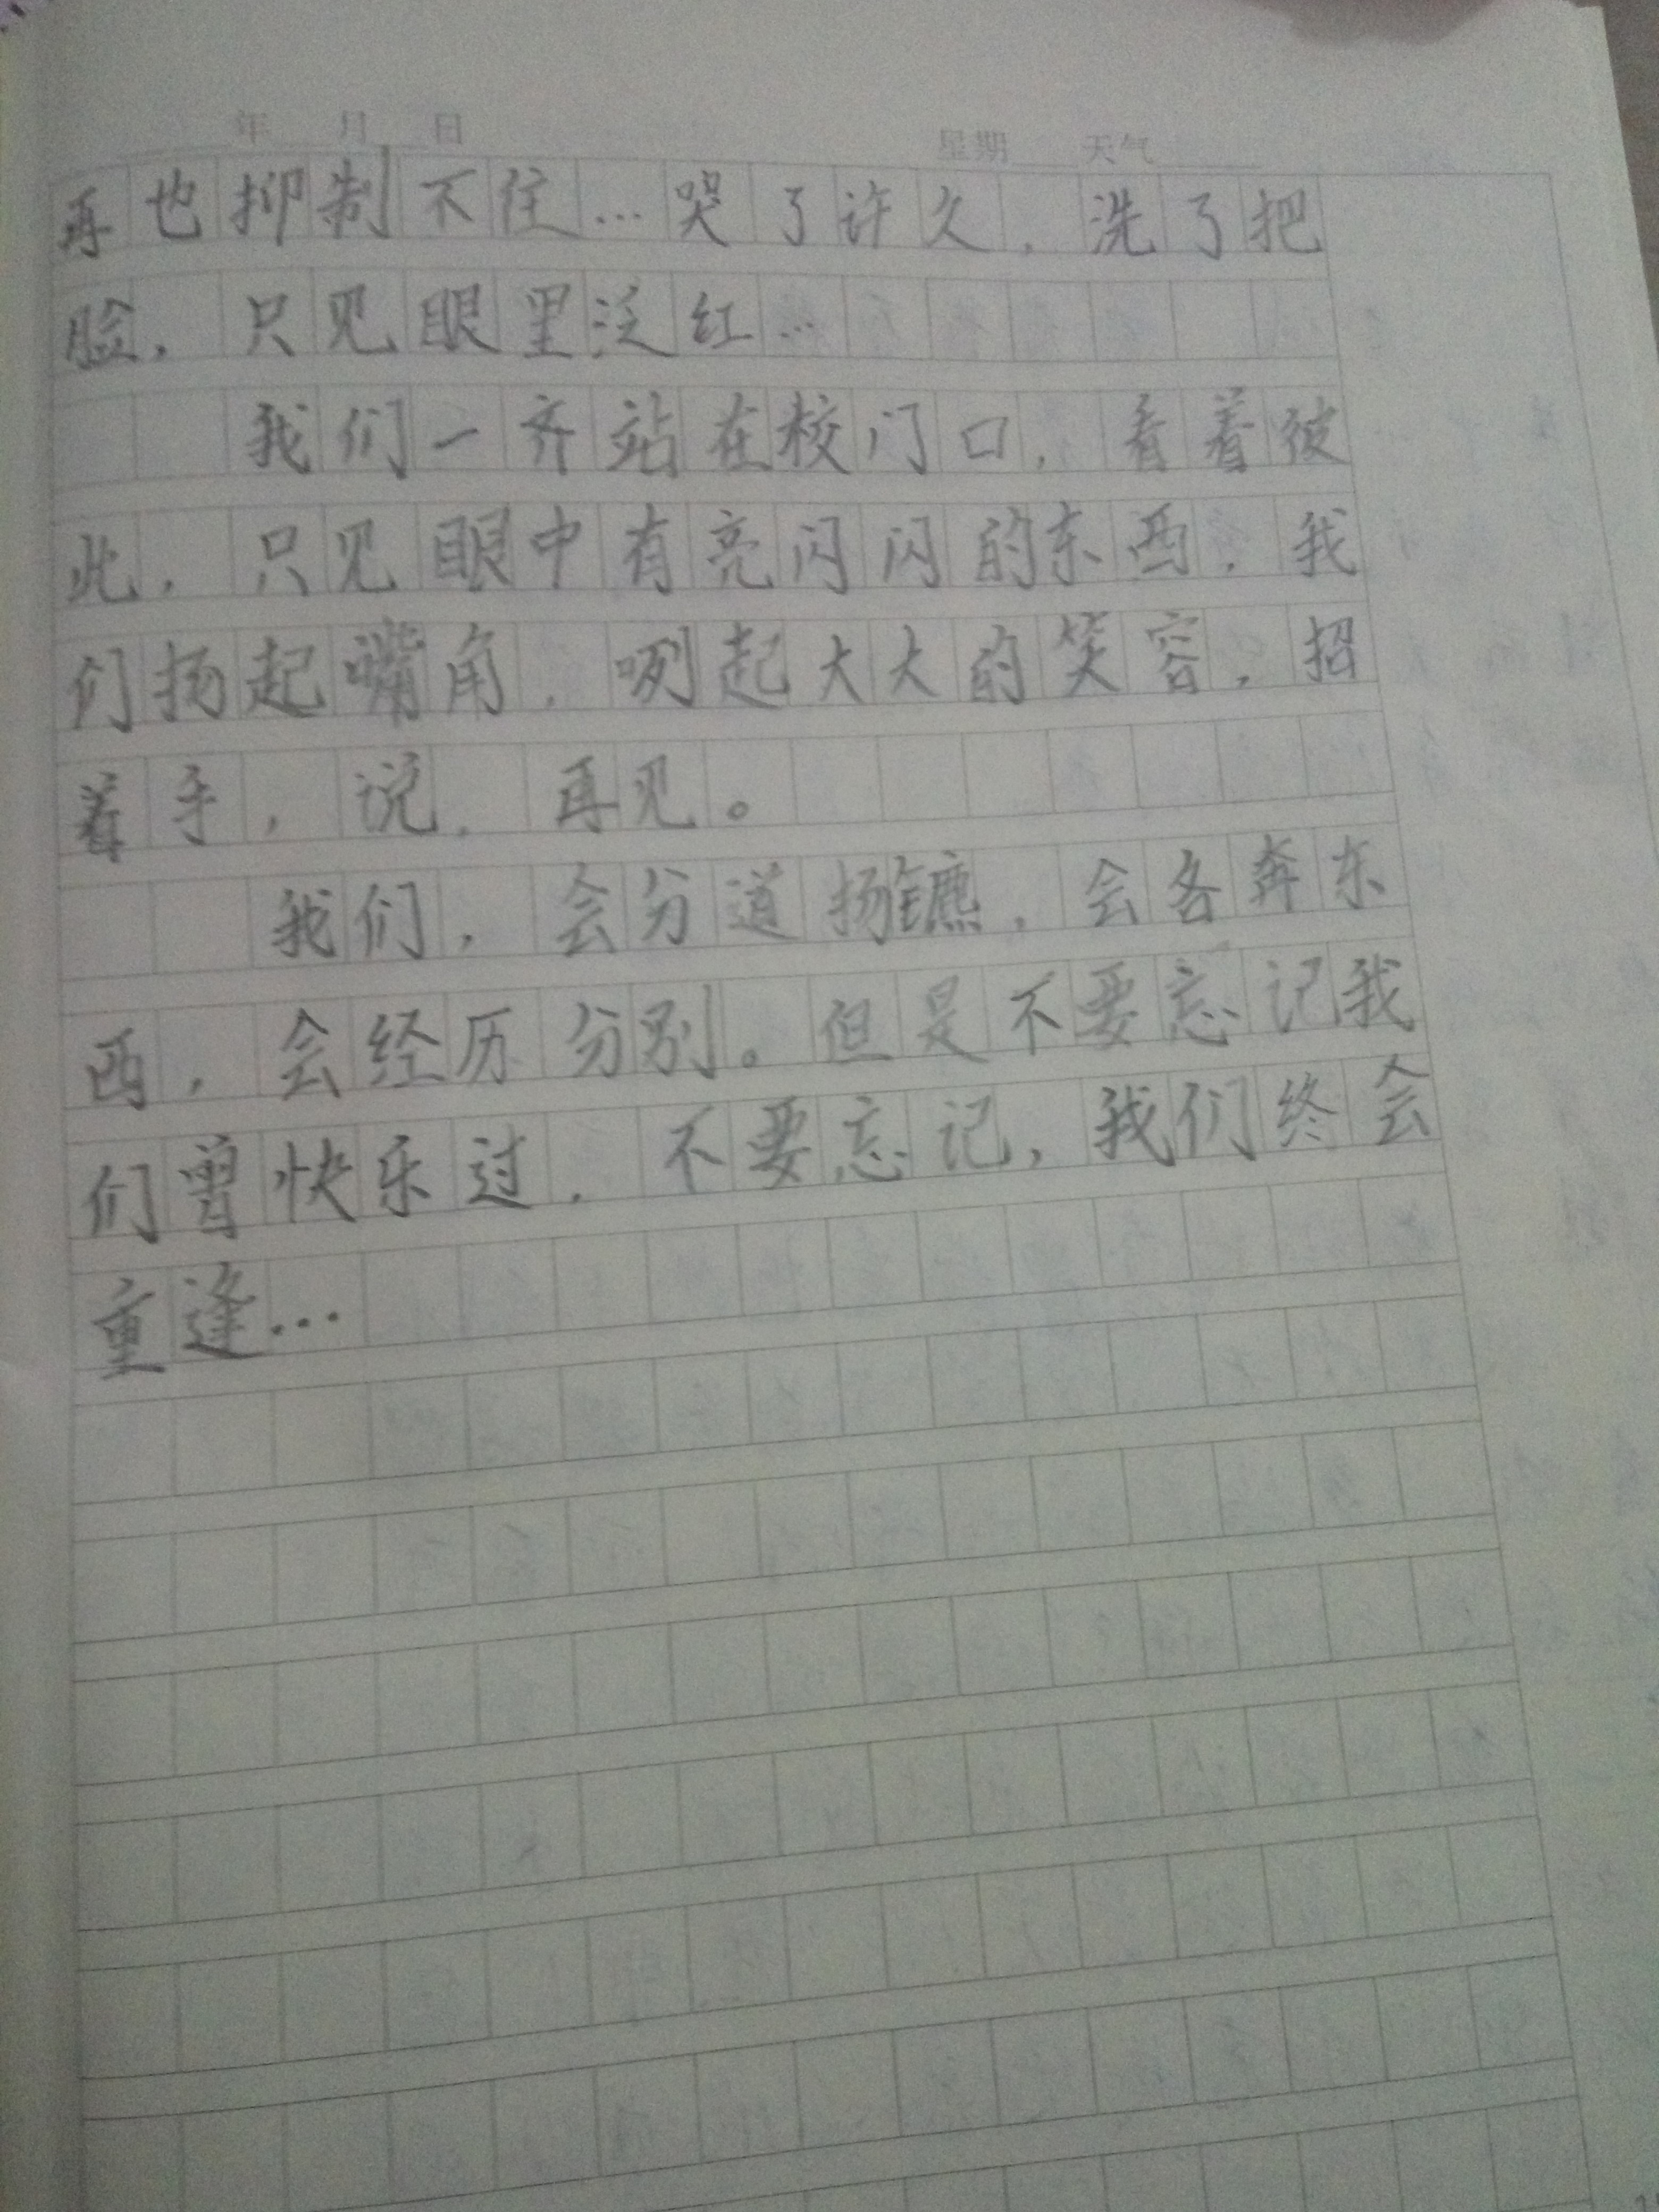 年 月 日 星期 天气
再也抑制不住…哭了许久,洗了把
脸,只见眼里泛红…
我们一齐站在校门口,看着彼
此,只见眼中有亮闪闪的东西,我
们扬起嘴角,咧起大大的笑容,招
着手,说,再见。
我们,会分道扬镳,会各奔东
西,会经历分别。但是不要忘记我
们曾快乐过,不要忘记,我们终会
重逢…